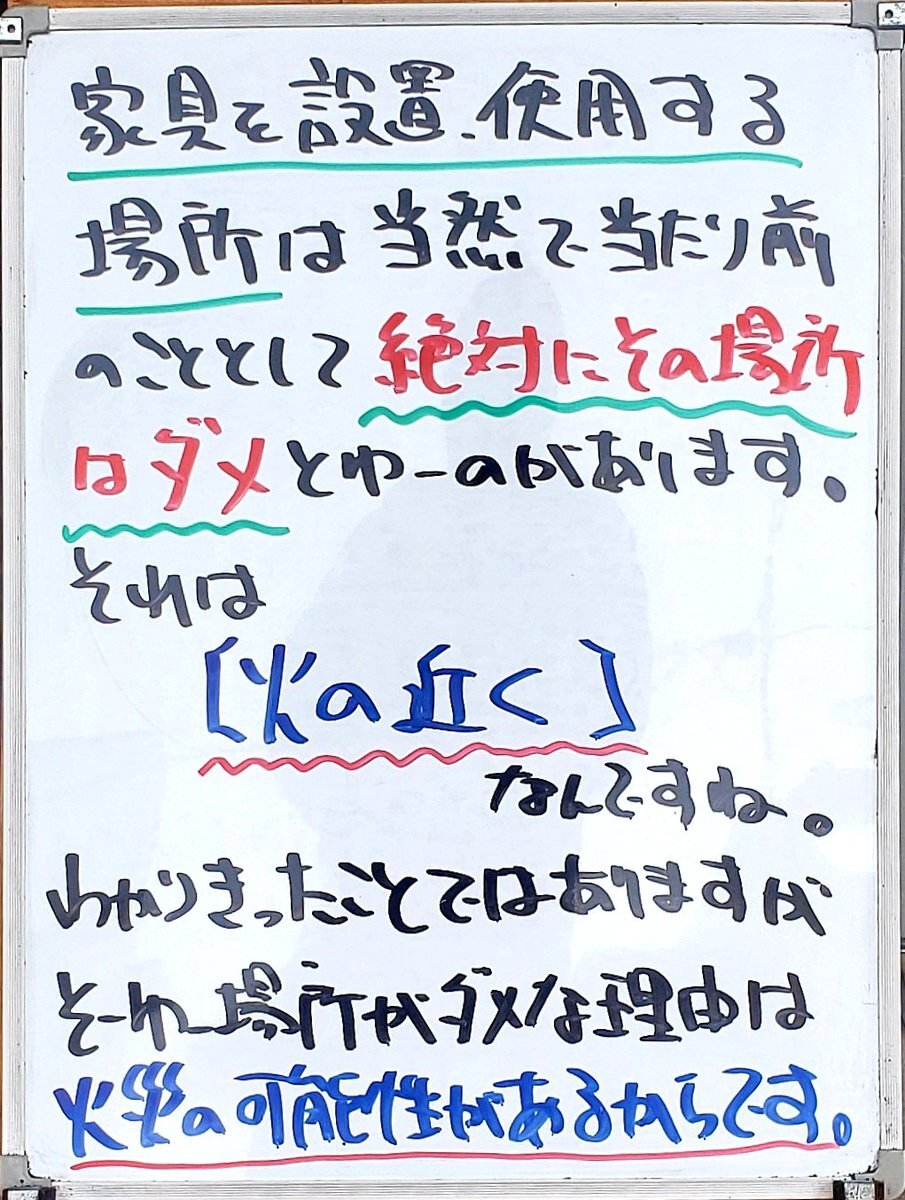 家具を設置、使用する
場所は当然で当たり前
のこととして絶対にその場所
はダメとゆーのがあります。
それは
[火の近く]
なんですね。
わかりきったことではありますが
そーゆー場所がダメな理由は
火災の可能性があるからです。